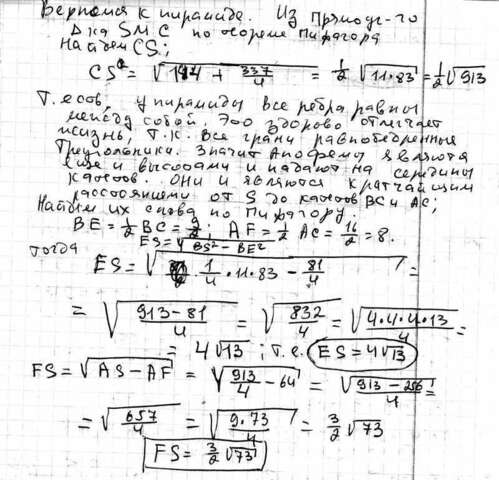 Вернемся к пирамиде. Из прямоуг-го
Δка SMC по теореме Пифагора
Найдем CS;
CS = √(144 + 337/4) = 1/2 √(11·83) = 1/2 √913
Т.е. у пирамиды все ребра равны
между собой. Это здорово облегчает
жизнь, т.к. все грани равнобедренные
треугольники. Значит Апофемы являются
еще и высотами и падают на середины
катетов... Они и являются кратчайшим
расстоянием от S до катетов BC и AC;
Найдем их снова по Пифагору.
BE = 1/2 BC = 9/2; AF = 1/2 AC = 16/2 = 8.
тогда ES = √(BS² - BE²)
ES = √(1/4 · 11·83 - 81/4) =
= √((913-81)/4) = √(832/4) = √(4·4·4·13/4) =
= 4√13; т.е. ES = 4√13
FS = √(AS - AF) = √(913/4 - 64) = √((913 - 256)/4) =
= √(657/4) = √(9·73/4) = 3/2 √73
FS = 3/2 √73